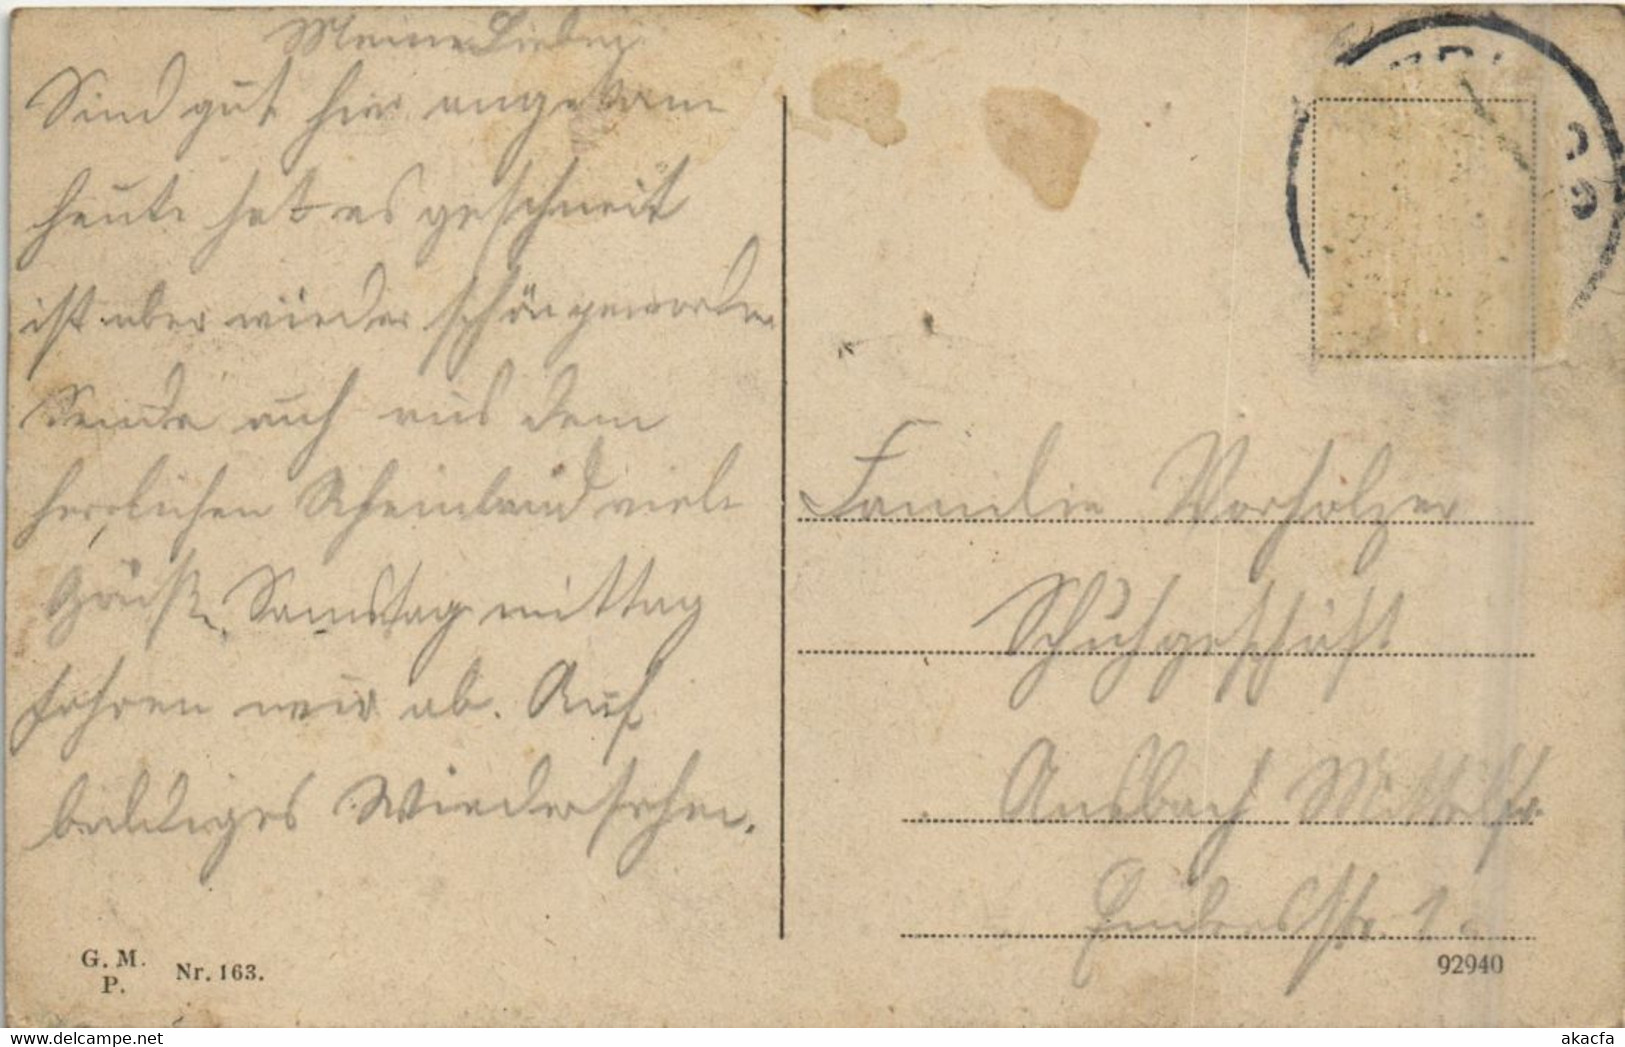 Meine Lieben
Sind gut hier angekom
heute hat es geschneit
ist aber wieder schön geworden
Sende auch aus dem
herrlichen Rheinland viele
Grüße, Samstag mittag
fahren wir ab. Auf
baldiges Wiedersehen.
G. M.
P.
Nr. 163.
Familie Vorholzer
Schuhgeschäft
Ansbach Mittelfr.
Endresstr. 1
92940
akacfa
delcampe.net